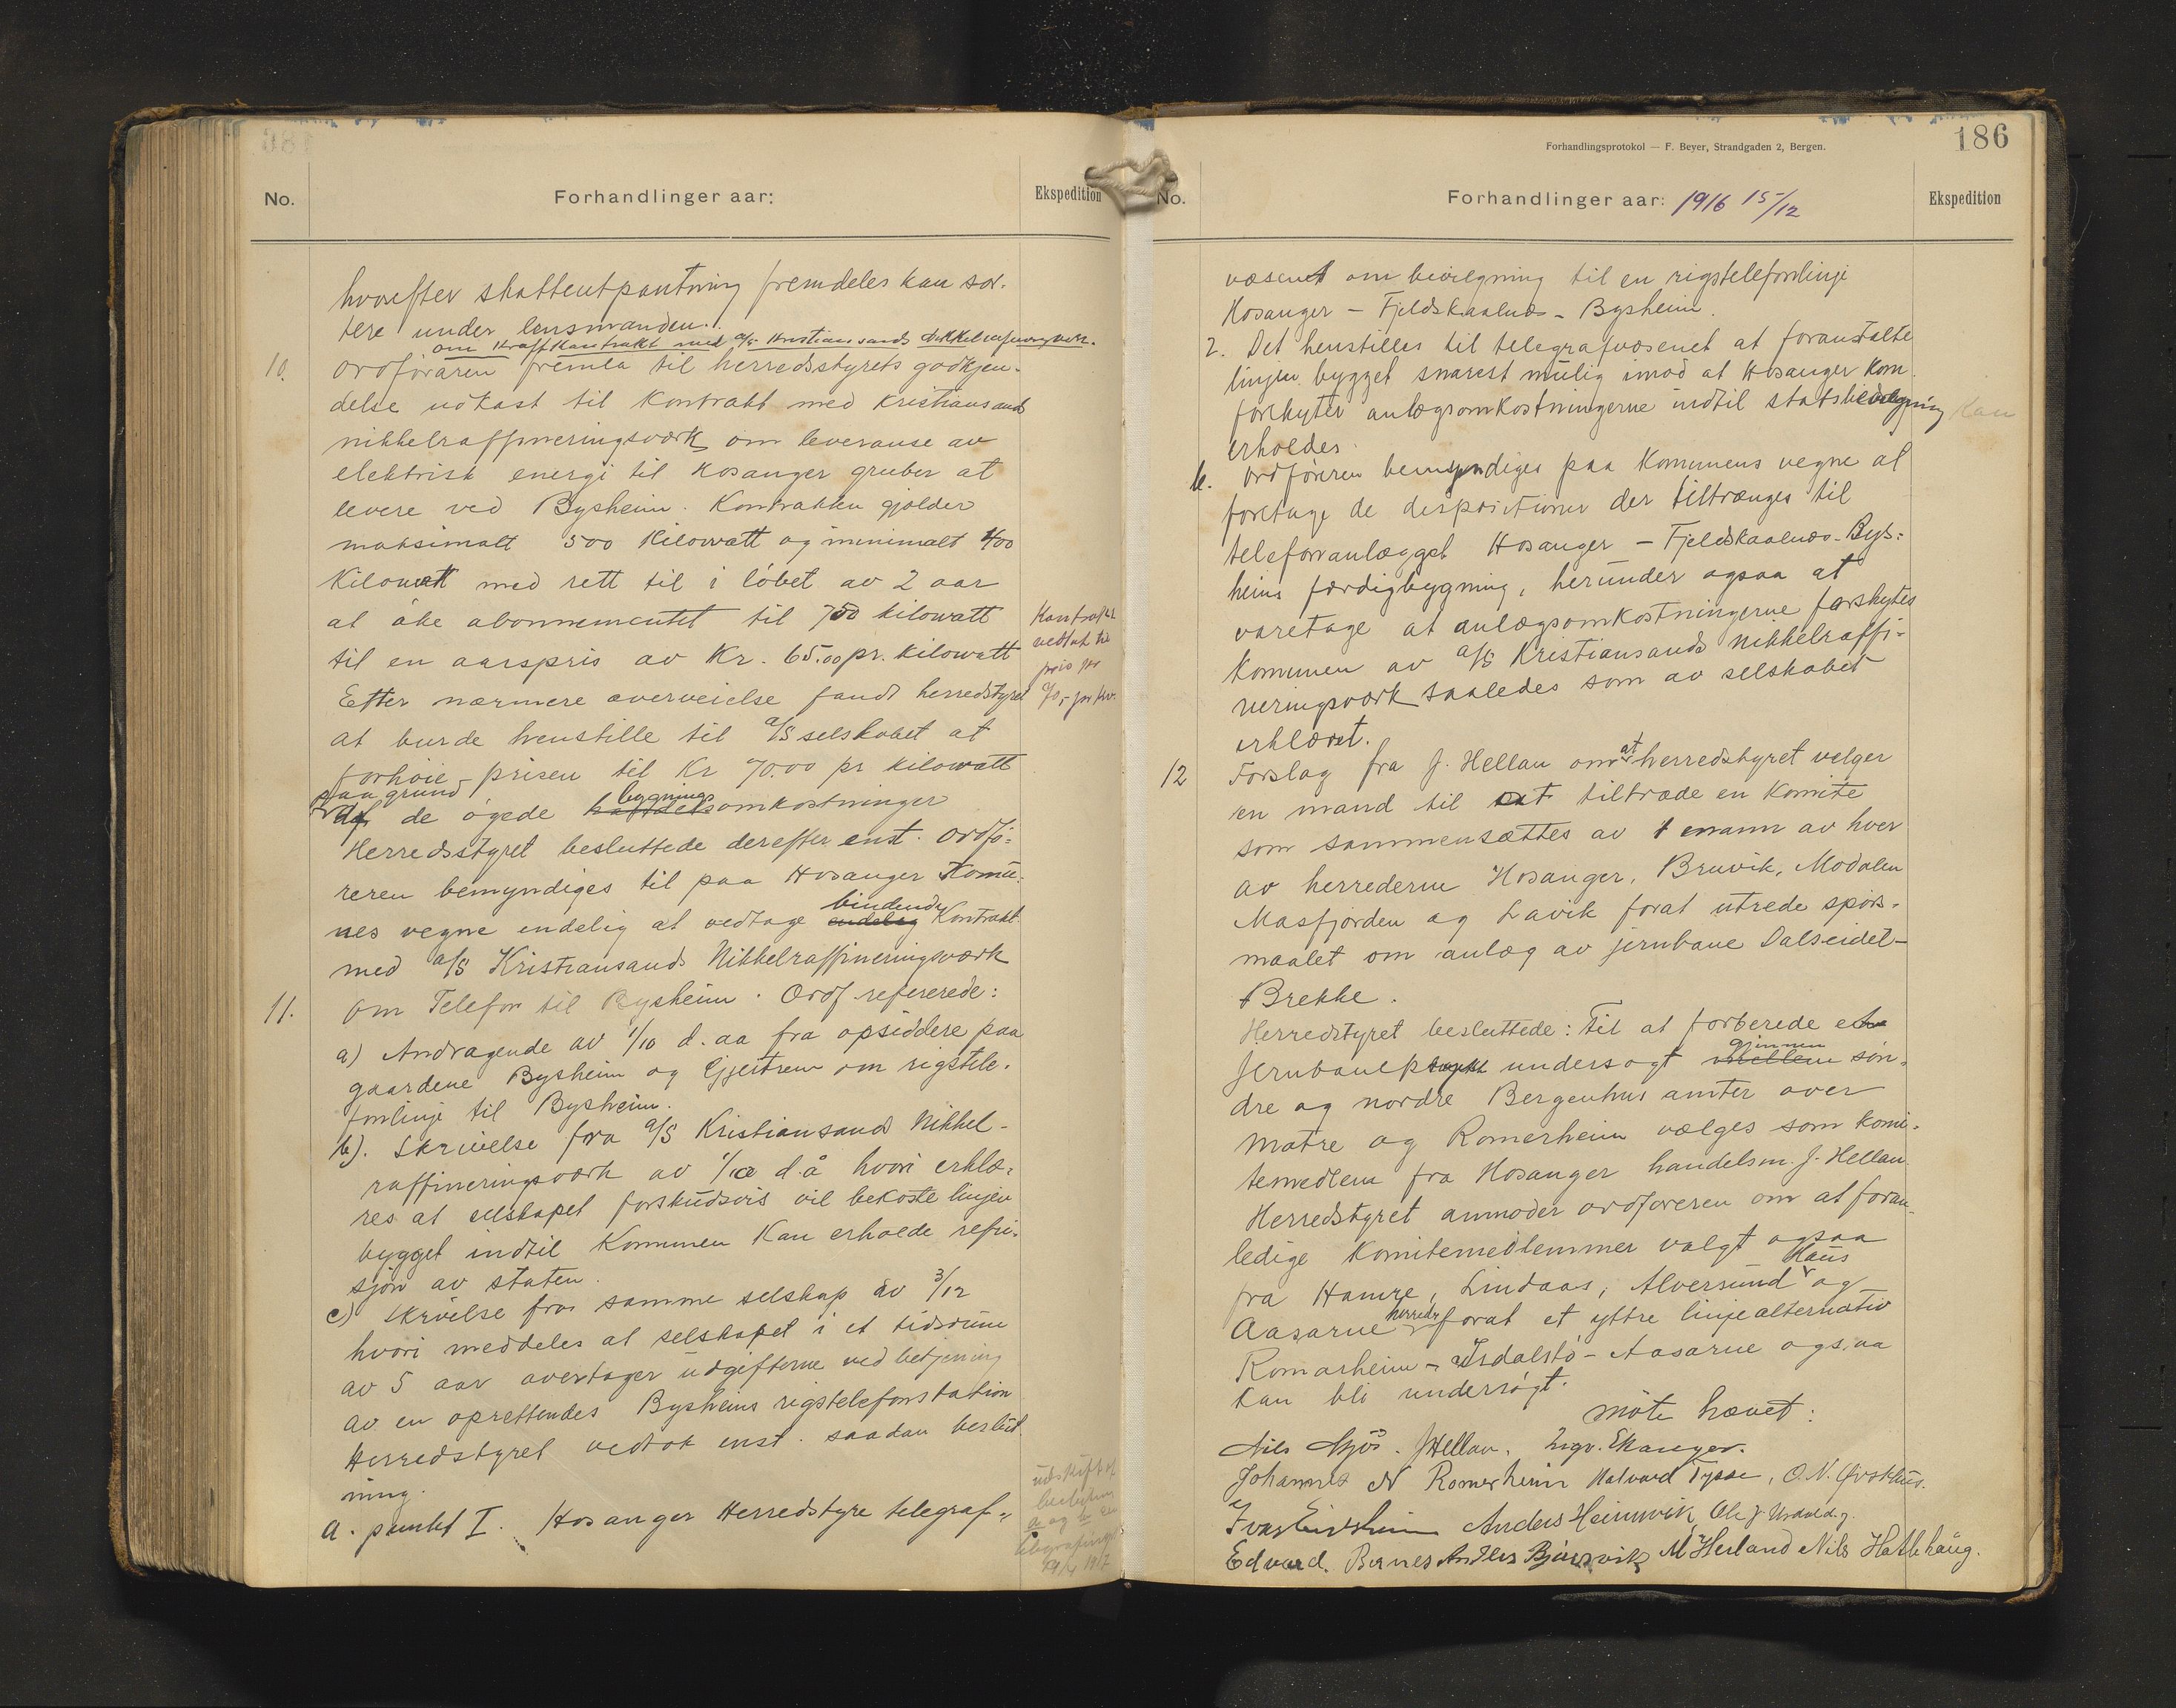 No.
Forhandlinger aar:
Ekspedition
hvorefter skatteutpantning fremdeles kan sor-
tere under lensmanden.
om Kraftkontrakt med a/s Kristiansands Nikkelrafineringsverk.
10.
Ordføraren fremla til herredsstyrets godkjen-
delse udkast til Kontrakt med Kristiansands
nikkelraffineringsværk om leveranse av
elektrisk energi til Hosanger gruber at
levere ved Bysheim. Kontrakten gjelder
maksimalt 500 Kilowatt og minimalt 400
Kilowatt med rett til i løbet av 2 aar
at øke abonnementet til 750 kilowatt
til en aarspris av Kr. 65.00 pr. kilowatt
Kontrakt
vedtat til
pris
Efter nærmere overveielse fandt herredstyret
at burde henstille til a/s selskabet at
forhøie prisen til Kr 70.00 pr kilowatt
paa grund
af de øgede bygningsomkostninger
Herredsstyret besluttede derefter enst. Ordfø-
reren bemyndiges til paa Hosanger Komu-
nes vegne endelig at vedtage endelig bindende Kontrakt
med a/s Kristiansands Nikkelraffineringsværk
11.
Om Telefon til Bysheim. Ordf refererede:
a) Andragende av 1/10 d. aa fra opsiddere paa
gaardene Bysheim og Gjeitrem om rigstele-
fonlinje til Bysheim.
b). Skrivelse fra a/s Kristiansands Nikkel-
raffineringsværk av 1/10 d.å hvori erklæ-
res at selskapet forskudsvis vil bekoste linjen
bygget indtil Kommunen Kan erholde refu-
sjon av staten.
c) Skrivelse fra samme selskap av 3/12
hvori meddeles at selskapet i et tidsrum
av 5 aar overtager udgifterne ved betjening
av en oprettendes Bysheims rigstelefonstation
Herredstyret vedtok enst. saadan beslut
ning.
a. punkt I. Hosanger Herredstyre telegraf-
utskrift af
a og b
1917
Forhandlingsprotokol — F. Beyer, Strandgaden 2, Bergen.
186
No.
Forhandlinger aar: 1916 15/12
Ekspedition
væsenet om bevilgning til en rigstelefonlinje
Hosanger - Fjeldskaalnes - Bysheim.
2. Det henstilles til telegrafvæsenet at foranstalte
linjen bygget snarest mulig imod at Hosanger Kom.
forskyter anlægsomkostningerne indtil statsbevilgning kan
erholdes.
b. Ordføreren bemyndiges paa Kommunens vegne at
foretage de dispositioner der tiltrænges til
telefonanlægget Hosanger - Fjeldskaalnes - Bys-
heims færdigbygning, herunder ogsaa at
varetage at anlægsomkostningerne forskytes
Kommunen av a/s Kristiansands nikkelraffi-
neringsværk saaledes som av selskabet
erklæret.
12
Forslag fra J. Hellan om at herredstyret velger
en mand til at tiltræde en Komite
som sammensættes av 1 mann av hver
av herrederne Hosanger, Bruvik, Modalen
Masfjorden og Lavik forat utrede spørs-
maalet om anlæg av jernbane Dalseidet-
Brekke.
Herredstyret besluttede: Til at forberede et
Jernbaneprosjekt undersøgt mellem gjennem søn-
dre og nordre Bergenhus amter over
Matre og Romerheim vælges som komi-
temedlem fra Hosanger handelsm. J. Hellan.
Herredstyret anmoder ordføreren om at foran-
ledige Komitemedlemmer valgt ogsaa
fra Hamre, Lindaas, Alversund Haus og
Aasarne herreder forat et yttre linjealternativ
Romarheim - Isdalstø - Aasarne ogsaa
kan bli undersøgt.
møte hævet:
Nils Mjøs. JHellan. Ingv. Ekanger.
Johannes N Romerheim Halvard Tysse, O. N.
Anders Heimvik, Ole J
Edvard. Bernes Anders Bjørsvik M Herland Nils Hatlehaug.